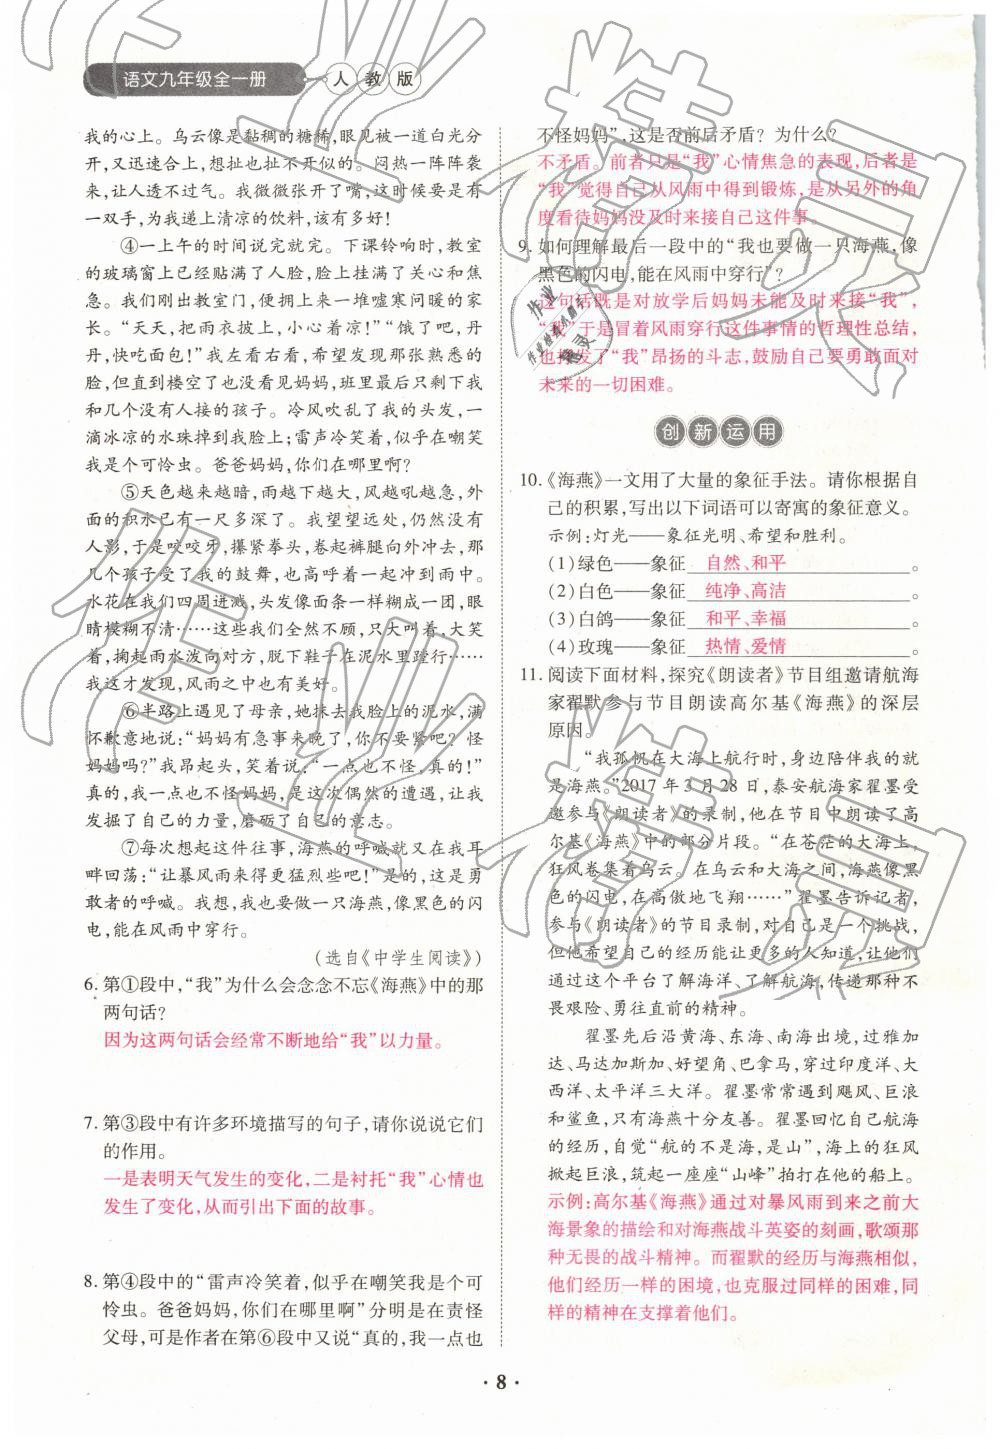 语文九年级全一册 人教版
我的心上。乌云像是黏稠的糖稀,眼见被一道白光分
开,又迅速合上,想扯也扯不开似的。闷热一阵阵袭
来,让人透不过气。我微微张开了嘴,这时候要是有
一双手,为我递上清凉的饮料,该有多好!
④一上午的时间说完就完。下课铃响时,教室
的玻璃窗上已经贴满了人脸,脸上挂满了关心和焦
急。我们刚出教室门,便拥上来一堆嘘寒问暖的家
长。“天天,把雨衣披上,小心着凉!”“饿了吧,丹
丹,快吃面包!”我左看右看,希望发现那张熟悉的
脸,但直到楼空了也没看见妈妈,班里最后只剩下我
和几个没有人接的孩子。冷风吹乱了我的头发,一
滴冰凉的水珠掉到我脸上;雷声冷笑着,似乎在嘲笑
我是个可怜虫。爸爸妈妈,你们在哪里啊?
⑤天色越来越暗,雨越下越大,风越吼越急,外
面的积水已有一尺多深了。我望望远处,仍然没有
人影,于是咬咬牙,攥紧拳头,卷起裤腿向外冲去,那
几个孩子受了我的鼓舞,也高呼着一个一个地冲出。
水花在我们四周迸溅,头发像面条一样糊成一团,眼
睛模糊不清……这些我们全然不顾,只大叫着,大笑
着,掬起雨水泼向对方,脱下鞋子在泥水里蹚行……
我这才发现,风雨之中也有美好。
⑥半路上遇见了母亲,她抹去我脸上的泥水,满
怀歉意地说:“妈妈有急事来晚了,你不要紧吧?怪
妈妈吗?”我昂起头,笑着说:“一点也不怪,真的!”
真的,我一点也不怪妈妈,是这次偶然的遭遇,让我
发掘了自己的力量,磨砺了自己的意志。
⑦每次想起这件往事,海燕的呼喊就又在我耳
畔回荡:“让暴风雨来得更猛烈些吧!”是的,这是勇
敢者的呼喊。我想,我也要做一只海燕,像黑色的闪
电,能在风雨中穿行。
(选自《中学生阅读》)
6. 第①段中,“我”为什么会念念不忘《海燕》中的那
两句话?
因为这两句话会经常不断地给“我”以力量。
7. 第③段中有许多环境描写的句子,请你说说它们
的作用。
一是表明天气发生的变化,二是衬托“我”心情也
发生了变化,从而引出下面的故事。
8. 第④段中的“雷声冷笑着,似乎在嘲笑我是个可
怜虫。爸爸妈妈,你们在哪里啊”分明是在责怪
父母,可是作者在第⑥段中又说“真的,我一点也
不怪妈妈”,这是否前后矛盾?为什么?
不矛盾。前者只是“我”心情焦急的表现,后者是
“我”觉得自己从风雨中得到锻炼,是从另外的角
度看待妈妈没及时来接自己这件事。
9. 如何理解最后一段中的“我也要做一只海燕,像
黑色的闪电,能在风雨中穿行”?
这句话既是对放学后妈妈未能及时来接“我”,
“我”于是冒着风雨穿行这件事情的哲理性总结,
也抒发了“我”昂扬的斗志,鼓励自己要勇敢面对
未来的一切困难。
创新运用
10.《海燕》一文用了大量的象征手法。请你根据自
己的积累,写出以下词语可以寄寓的象征意义。
示例:灯光——象征光明、希望和胜利。
(1)绿色——象征 自然、和平 。
(2)白色——象征 纯净、高洁 。
(3)白鸽——象征 和平、幸福 。
(4)玫瑰——象征 热情、爱情 。
11. 阅读下面材料,探究《朗读者》节目组邀请航海
家翟默参与节目朗读高尔基《海燕》的深层
原因。
“我孤帆在大海上航行时,身边陪伴我的就
是海燕。”2017年3月28日,泰安航海家翟墨受
邀参与《朗读者》的录制,他在节目中朗读了高
尔基《海燕》中的部分片段。“在苍茫的大海上,
狂风卷集着乌云。在乌云和大海之间,海燕像黑
色的闪电,在高傲地飞翔……”翟墨告诉记者,
参与《朗读者》的节目录制,对自己是一大挑战,
但他希望自己的经历能让更多的人知道,让人们
通过这个平台了解海洋、了解航海,传递那种不
畏艰险、勇往直前的精神。
翟墨先后沿黄海、东海、南海出境,过雅加
达、马达加斯加、好望角、巴拿马,穿过印度洋、大
西洋、太平洋三大洋。翟墨常常遇到飓风、巨浪
和鲨鱼,只有海燕十分友善。翟墨回忆自己航海
的经历,自觉“航的不是海,是山”,海上的狂风
掀起巨浪,筑起一座座“山峰”拍打在他的船上。
示例:高尔基《海燕》通过对暴风雨到来之前大
海景象的描绘和对海燕战斗英姿的刻画,歌颂那
种无畏的战斗精神。而翟默的经历与海燕相似,
他们经历一样的困境,也克服过同样的困难,同
样的精神在支撑着他们。
· 8 ·
作业精灵